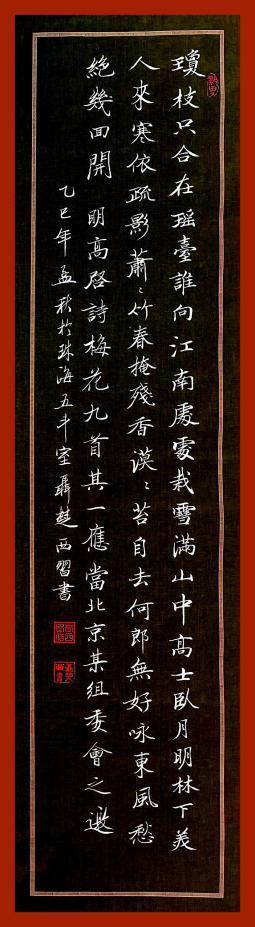 瓊枝只合在瑶臺誰向江南處處栽雪滿山中高士臥月明林下美
人來寒依疏影蕭〻竹春掩殘香漠〻苔自去何郎無好咏東風愁
絕幾回開 明高啓詩梅花九首其一應當北京某組委會之邀
乙巳年孟秋於珠海五斗室聶楚西習書